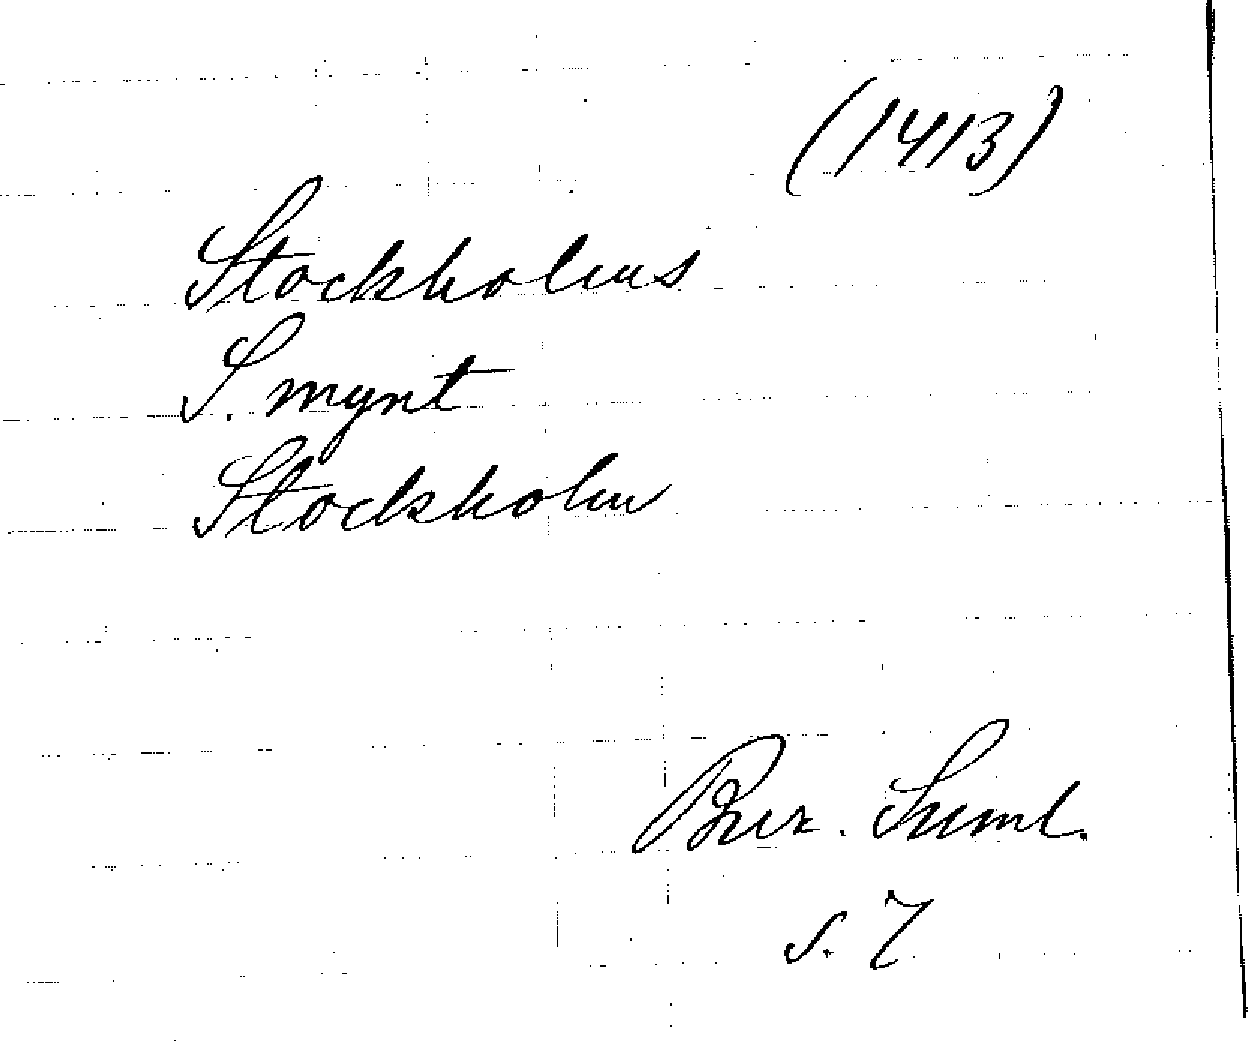 (1413)
Stockholms
S. mynt
Stockholm
Bur. Saml.
s. 7